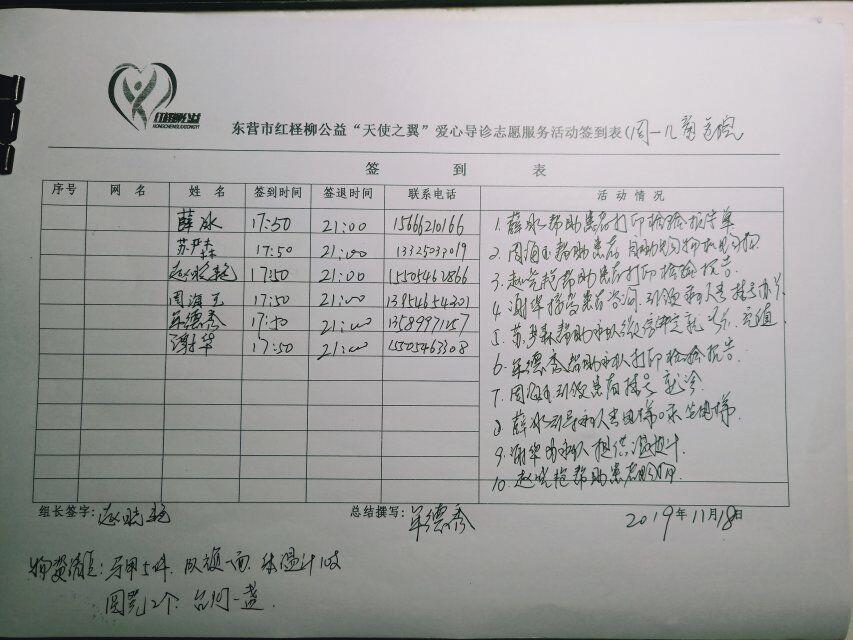 红柽柳公益
HONGCHENGLIUGONGYI
东营市红柽柳公益“天使之翼”爱心导诊志愿服务活动签到表(周一儿童医院
签 到 表
序号 网 名 姓 名 签到时间 签退时间 联系电话 活 动 情 况
薛冰 17:50 21:00 15666210166
苏尹森 17:50 21:00 13325033019
赵晓艳 17:50 21:00 15505462866
周海玉 17:50 21:00 13954654301
牟德秀 17:50 21:00 13589971057
谢华 17:50 21:00 15505463308
1. 薛冰帮助患者打印检验报告单
2. 周海玉帮助患者自助机
3. 赵晓艳帮助患者打印检验报告.
4. 谢华 患者咨询, 引领病人去挂号
5. 苏尹森帮助病人 绑定就诊卡, 充值
6. 牟德秀帮助病人打印检验报告.
7. 周海玉引领患者挂号就诊.
8. 薛冰引导病人去电梯口 坐电梯
9. 谢华为病人提供温度计.
10. 赵晓艳帮助患者
组长签字: 赵晓艳 总结撰写: 牟德秀 2019年11月18日
物资清点: 马甲5件. 队旗一面. 体温计1支
台灯一盏.